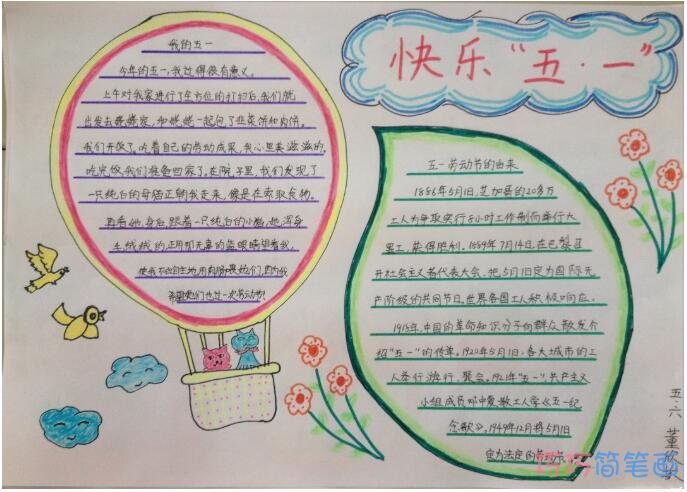 快乐“五·一”
我的五一
今年的五一,我过得很有意义。
上午对我家进行了全方位的打扫后,我们就
出发去姥姥家,和姥姥一起包了韭菜饼和肉饼。
我们开饭了,吃着自己的劳动成果,我心里美滋滋的。
吃完饭我们准备回家了,在院子里,我们发现了
一只纯白的母猫正朝我走来,像是在索取食物。
再看她身后,跟着一只纯白的小猫,她浑身
毛绒绒的,正用那无辜的蓝眼睛望着我,
使我不由自主地用肉饼喂她们,因为我
希望她们也过一次劳动节!
五一劳动节的由来
1886年5月1日,芝加哥的20多万
工人为争取实行8小时工作制而举行大
罢工,获得胜利。1889年7月14日,在巴黎召
开社会主义者代表大会,把5月1日定为国际无
产阶级的共同节日,世界各国工人积极响应。
1918年,中国的革命知识分子向群众散发介
绍“五一”的传单。1920年5月1日,各大城市的工
人举行游行、聚会。1921年“五一”,共产主义
小组成员邓中夏教工人学《五一纪
念歌》。1949年12月将5月1日
定为法定的劳动节
五.六 董
简笔画